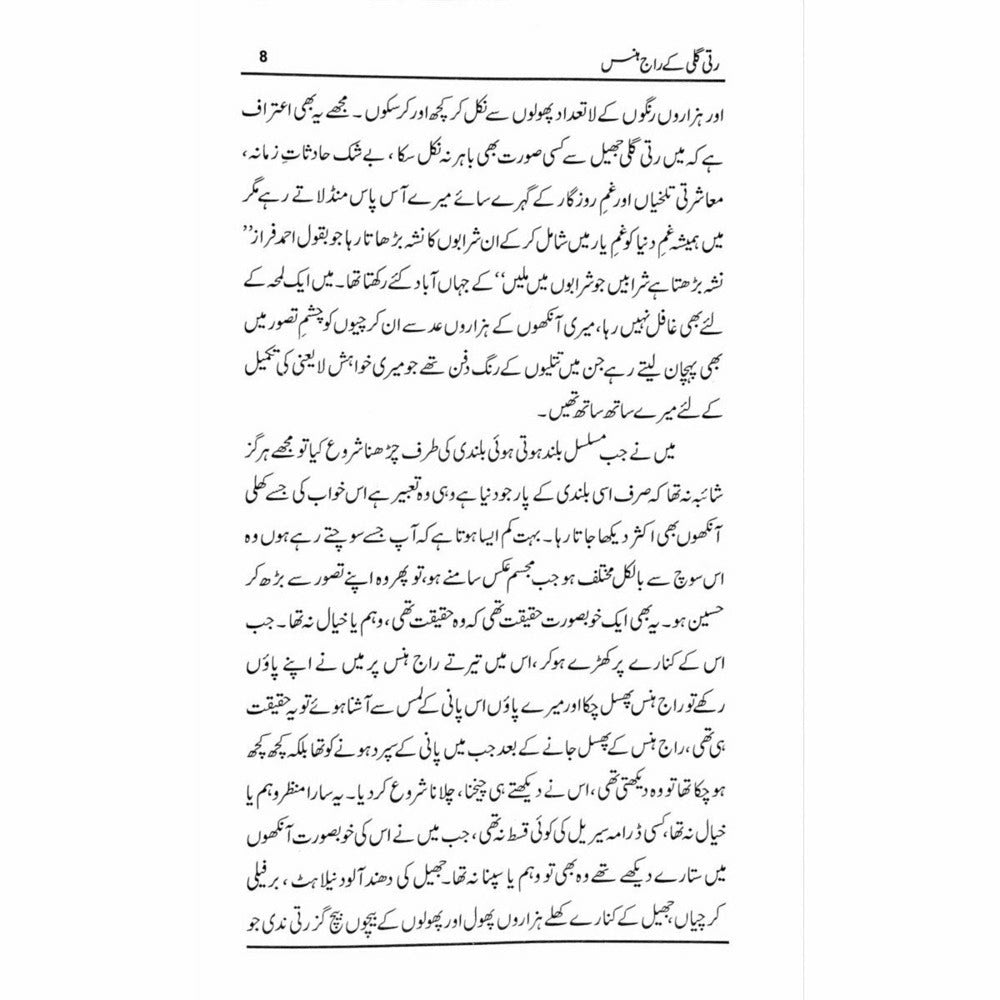 رتی گلی کے راج ہنس 8
اور ہزاروں رنگوں کے لاتعداد پھولوں سے نکل کر کچھ اور کر سکوں ۔ مجھے یہ بھی اعتراف
ہے کہ میں رتی گلی جھیل سے کسی صورت بھی باہر نہ نکل سکا ، بے شک حادثاتِ زمانہ،
معاشرتی تلخیاں اور غمِ روزگار کے گہرے سائے میرے آس پاس منڈلاتے رہے مگر
میں ہمیشہ غمِ دنیا کو غمِ یار میں شامل کر کے ان شرابوں کا نشہ بڑھاتا رہا جو بقول احمد فراز ”
نشہ بڑھتا ہے شرابیں جو شرابوں میں ملیں“ کے جہاں آباد کئے رکھتا تھا۔ میں ایک لمحہ کے
لئے بھی غافل نہیں رہا، میری آنکھوں کے ہزاروں عدسے ان کرچیوں کو چشمِ تصور میں
بھی پہچان لیتے رہے جن میں تتلیوں کے رنگ دفن تھے جو میری خواہش لایعنی کی تکمیل
کے لئے میرے ساتھ ساتھ تھیں ۔
میں نے جب مسلسل بلند ہوتی ہوئی بلندی کی طرف چڑھنا شروع کیا تو مجھے ہرگز
شائبہ نہ تھا کہ صرف اسی بلندی کے پار جو دنیا ہے وہی وہ تعبیر ہے اس خواب کی جسے کھلی
آنکھوں بھی اکثر دیکھا جاتا رہا ۔ بہت کم ایسا ہوتا ہے کہ آپ جسے سوچتے رہے ہوں وہ
اس سوچ سے بالکل مختلف ہو جب مجسم عکس سامنے ہو، تو پھر وہ اپنے تصور سے بڑھ کر
حسین ہو۔ یہ بھی ایک خوبصورت حقیقت تھی کہ وہ حقیقت تھی ، وہم یا خیال نہ تھا ۔ جب
اس کے کنارے پر کھڑے ہو کر ، اس میں تیرتے راج ہنس پر میں نے اپنے پاؤں
رکھے تو راج ہنس پھسل چکا اور میرے پاؤں اس پانی کے لمس سے آشنا ہوئے تو یہ حقیقت
ہی تھی ، راج ہنس کے پھسل جانے کے بعد جب میں پانی کے سپرد ہونے کو تھا بلکہ کچھ کچھ
ہو چکا تھا تو وہ دیکھتی تھی ، اس نے دیکھتے ہی چیخنا ، چلانا شروع کر دیا ۔ یہ سارا منظر وہم یا
خیال نہ تھا، کسی ڈرامہ سیریل کی کوئی قسط نہ تھی ، جب میں نے اس کی خوبصورت آنکھوں
میں ستارے دیکھے تھے وہ بھی تو وہم یا سپنا نہ تھا۔ جھیل کی دھند آلود نیلاہٹ ، برفیلی
کرچیاں، جھیل کے کنارے کھلے ہزاروں پھول اور پھولوں کے بیچوں بیچ گزرتی ندی جو